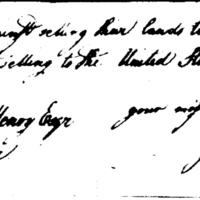 selling their lands to
selling to the United St
Henry Esqr your